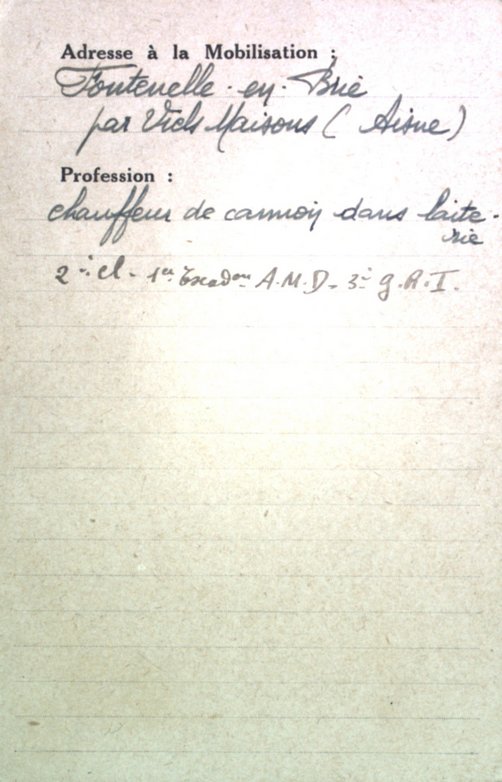 Adresse à la Mobilisation :
Fontenelle-en-Brie
par Viels Maisons ( Aisne )
Profession :
chauffeur de camion dans laite-
rie
2e cl. 1er Escadon A.M.D. 3e G.R.I.